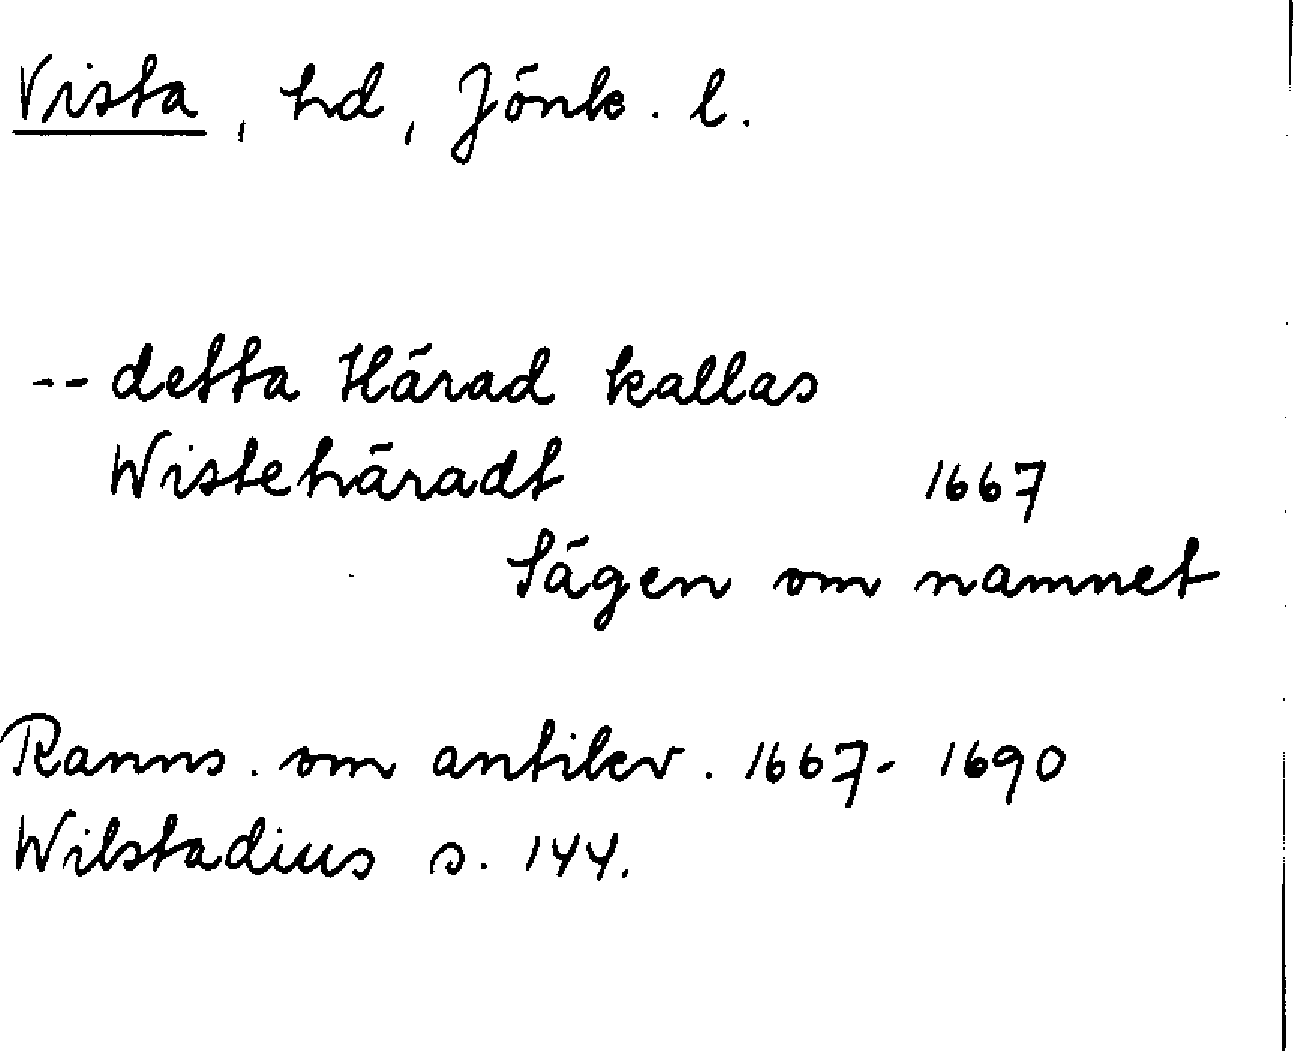 Vista, hd, Jönk. l.
-- detta Härad kallas
Wistehäradt 1667
Sägen om namnet
Ranns. om antikv. 1667-1690
Wilstadius s. 144.